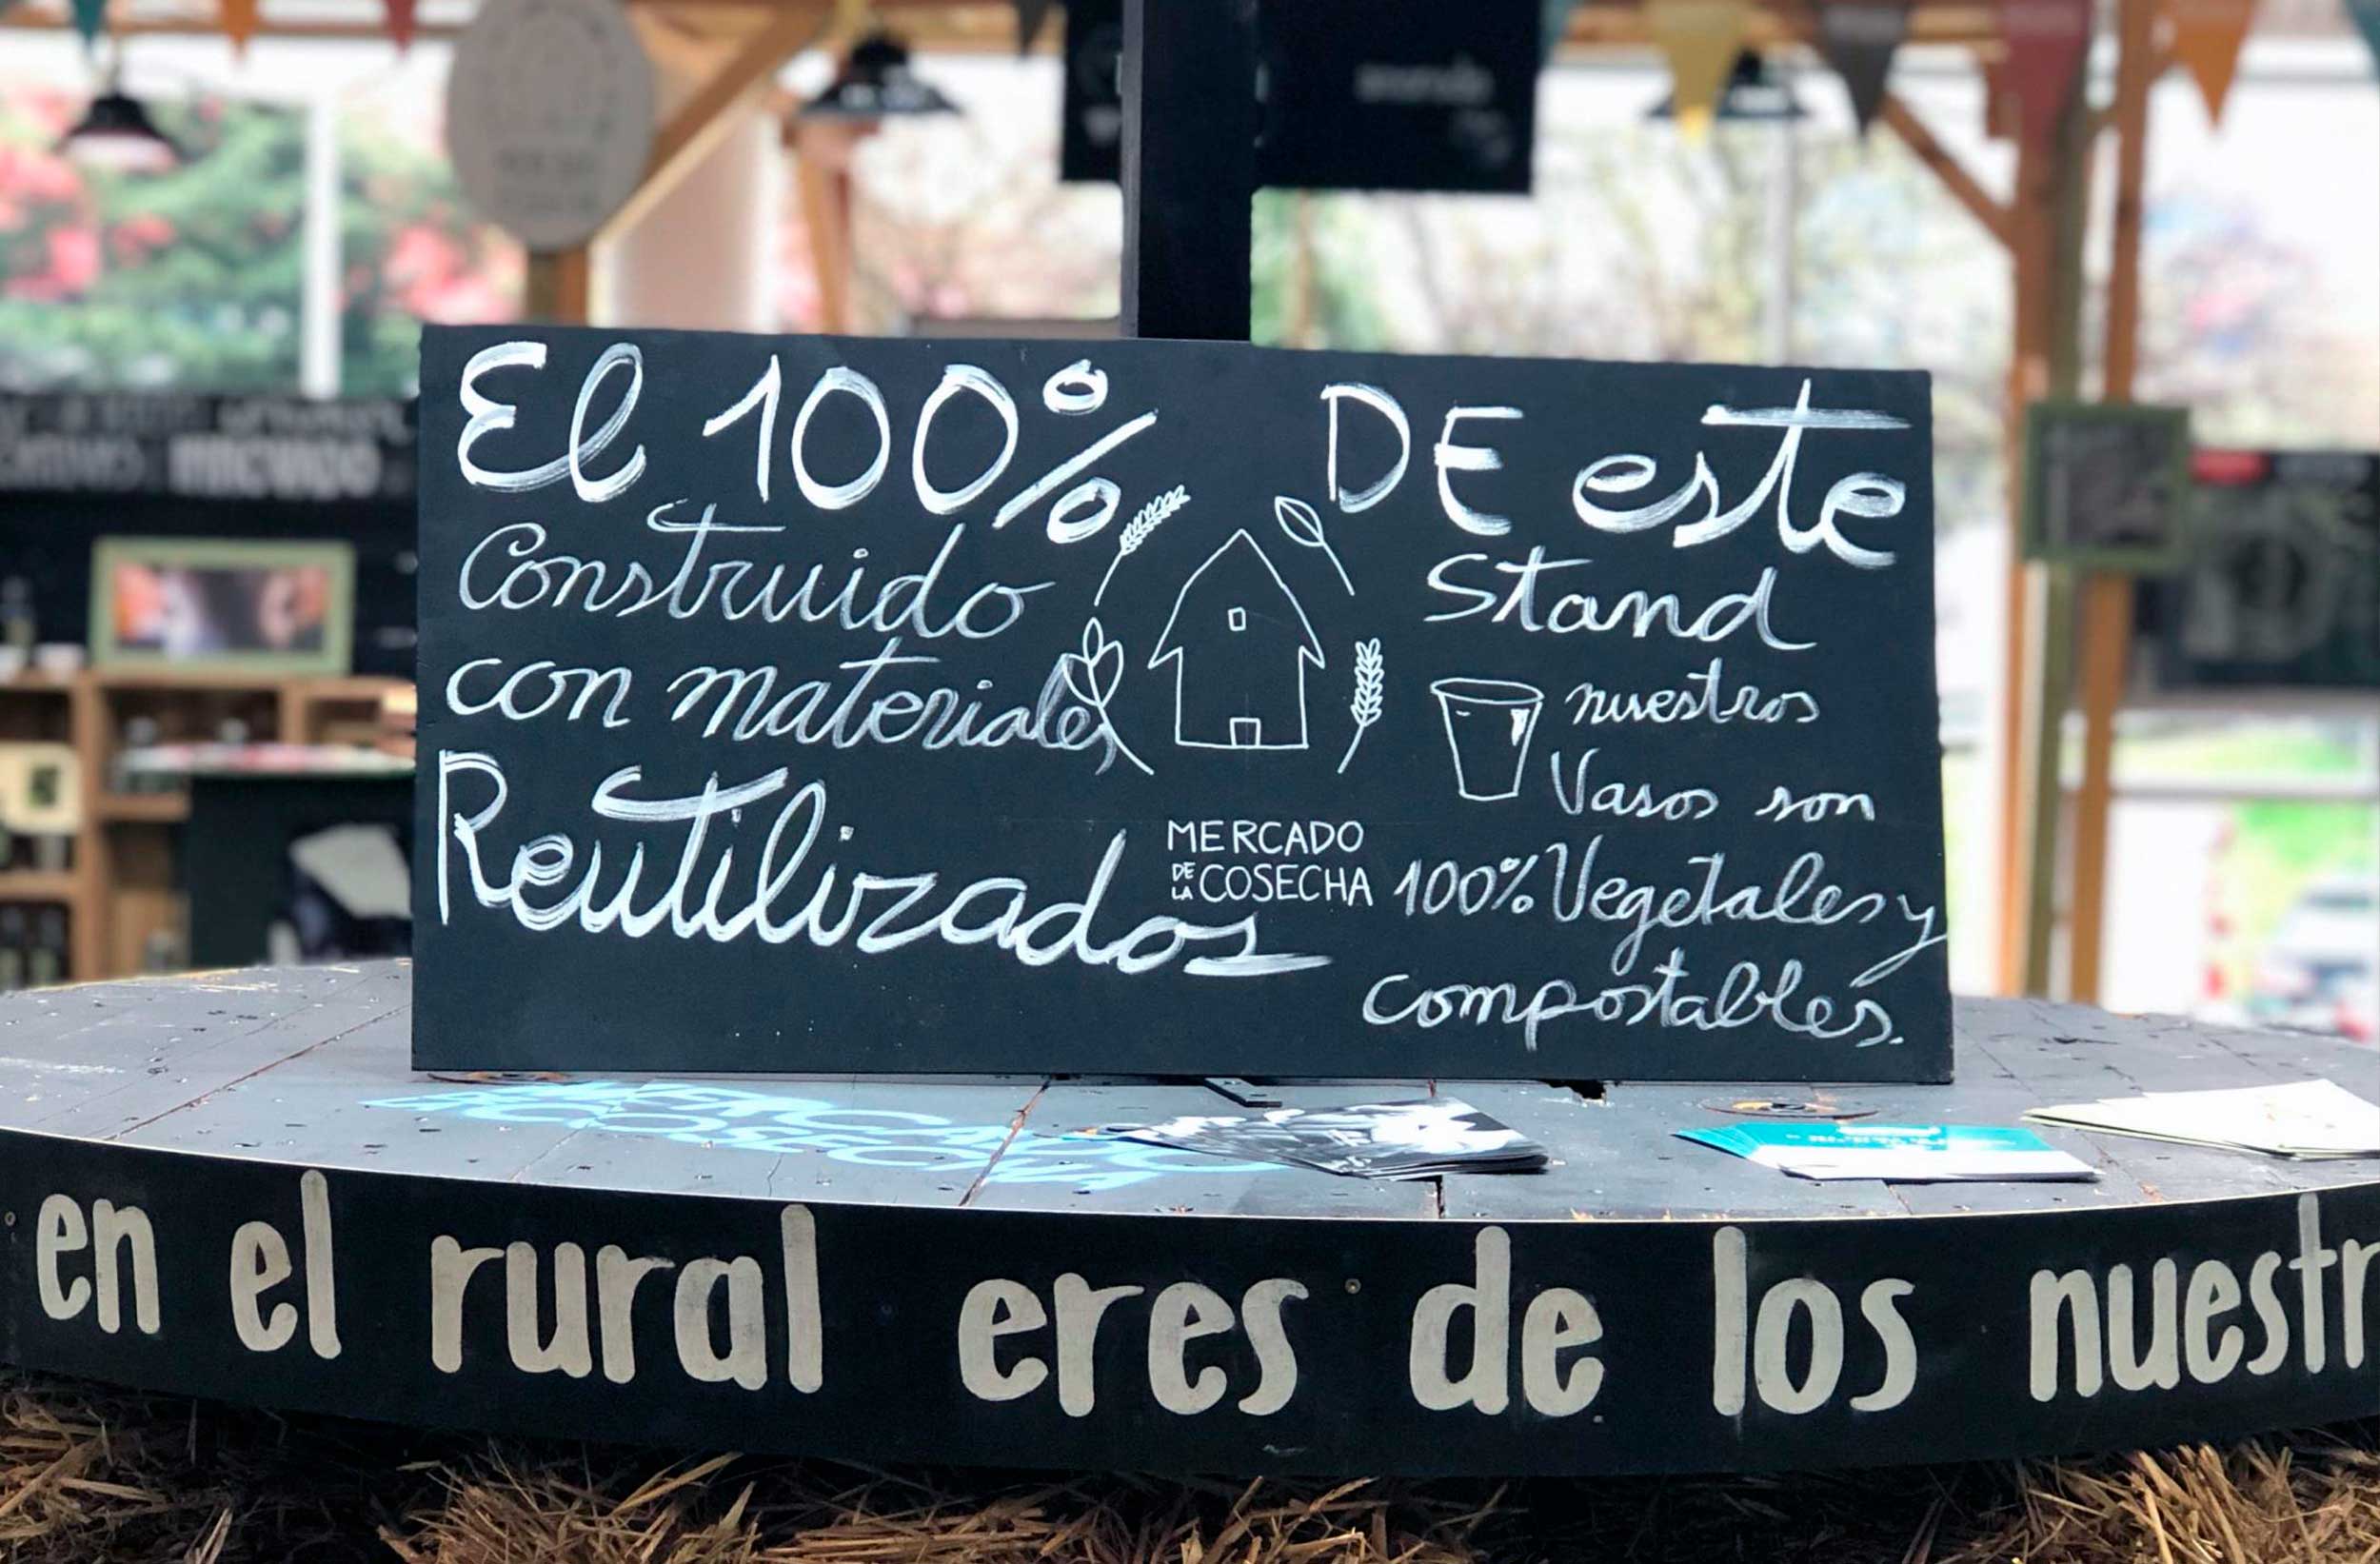 El 100% DE este
Construido Stand
con materiales
Reutilizados
nuestros
Vasos son
100% Vegetales y
compostables.
MERCADO
DE LA COSECHA
MERCADO
COSECHA
en el rural eres de los nuestr